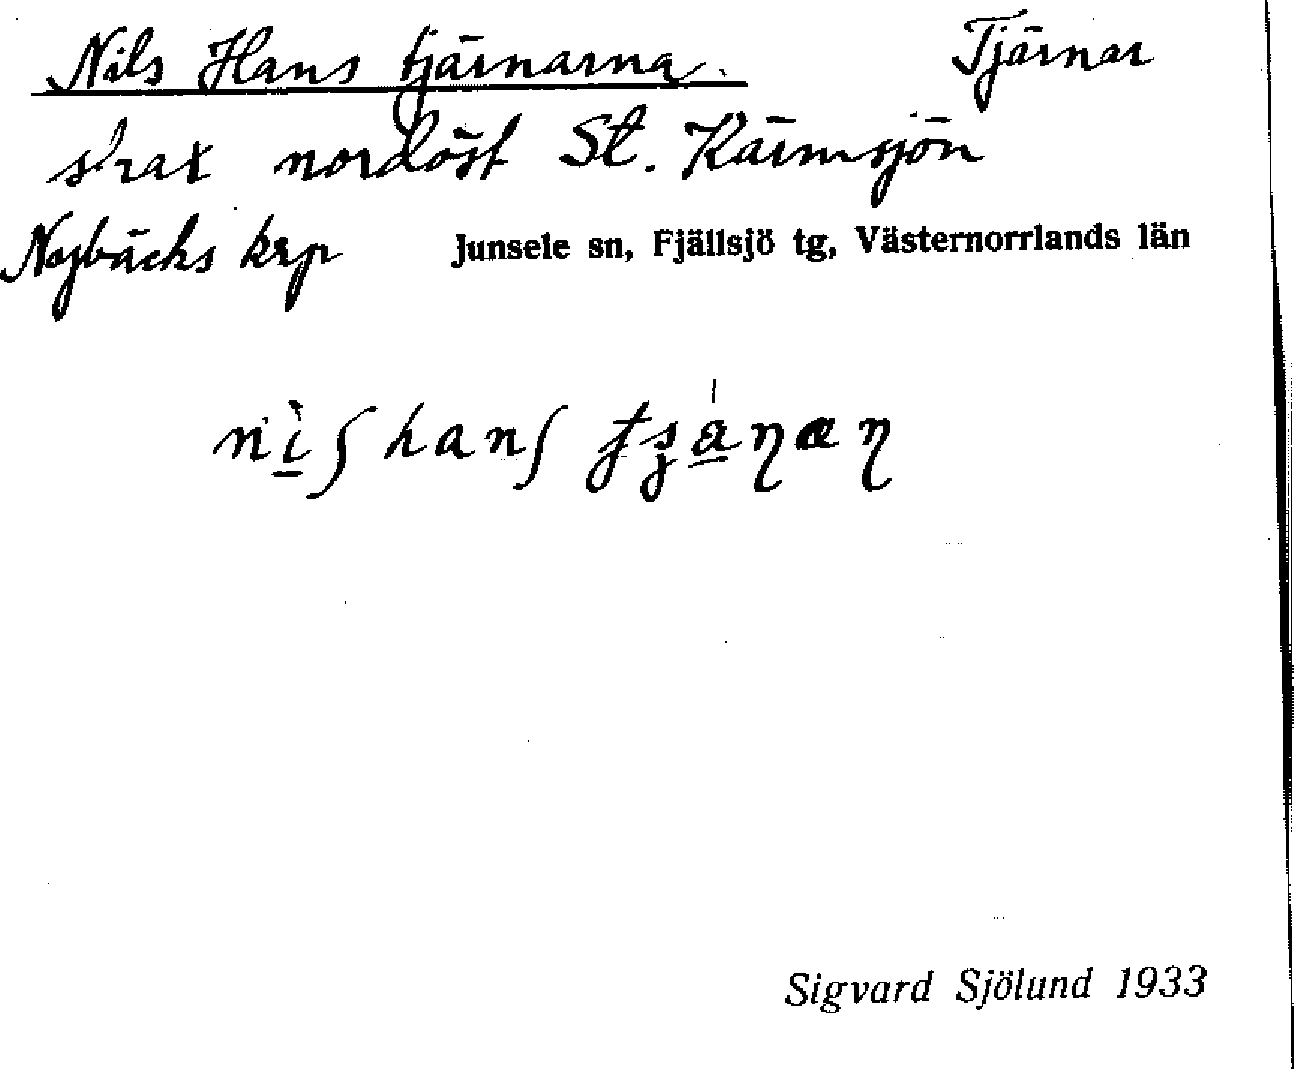 Nils Hans tjärnarna. Tjärnar
strax nordöst St. Kärmsjön
Nybäcks krp Junsele sn, Fjällsjö tg, Västernorrlands län
Sigvard Sjölund 1933